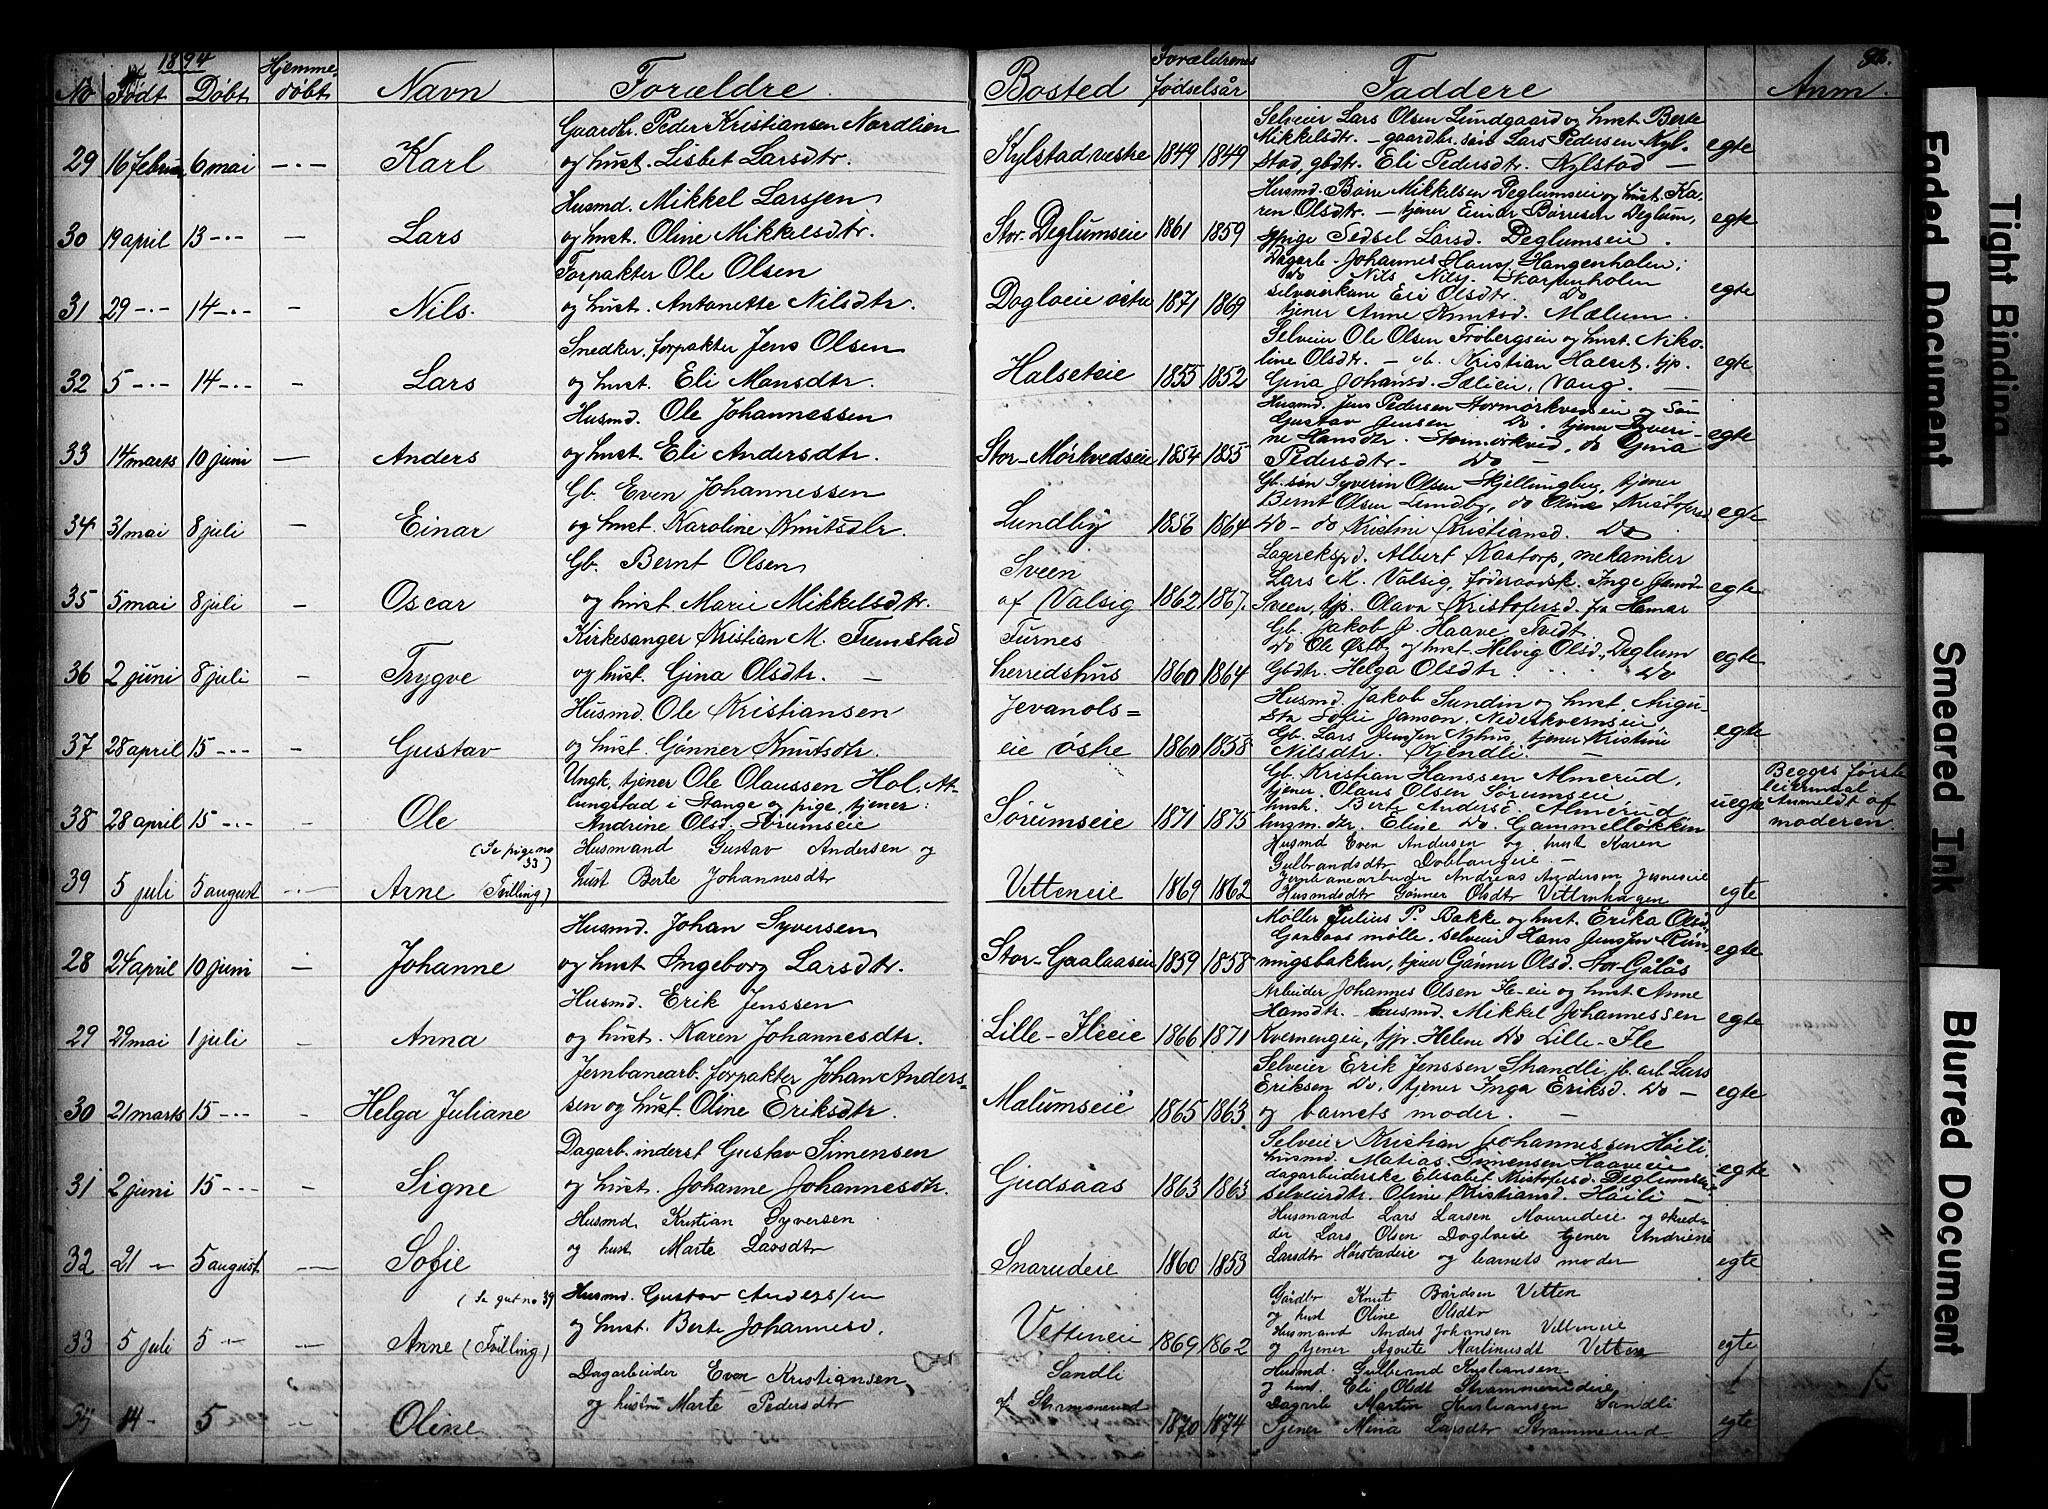 1894
No Født Døbt Hjemme-døbt Navn Forældre Bosted Forældrenes fødselsår Faddere Anm.
Gaardbr. Peder Kristiansen Nordlien
29 16 februar 6 mai - · - Karl og hust. Lisbet Larsdtr. Kylstad vestre 1849 1849 egte
Selveier Lars Olsen Lundgaard og hust. Berte
Mikkelsdtr. - gaardbr. søn Lars Pedersen Kyl-
stad, gbdtr. Eli Pedersdtr. Kylstad —
Husmd. Mikkel Larssen
30 19 april 13 - · - - Lars og hust. Oline Mikkelsdtr. Stor-Deglumseie 1861 1859 egte
Husmd. Børre Mikkelsen Deglumseie og hust. Ka-
ren Olsdtr. - tjener Einar Børresen Deglum,
pige Sedsel Larsd. Deglumseie.
Forpakter Ole Olsen
31 29 - · - 14 - · - - Nils og hust. Antonette Nilsdtr. Dogloeie østre 1871 1869 egte
Dagarb. Johannes Hansen Hangenholen;
do Nils Nils. Skarpenholen
selveierkone Eli Olsdtr. do
tjener Anne Knutsd. Mælum.
Snedker, forpakter Jens Olsen
32 5 - · - 14 - · - - Lars og hust. Eli Monsdtr. Halseteie 1855 1852 egte
Selveier Ole Olsen Frobergseie og hust. Niko-
line Olsdtr. - Kristian Halset, tjp.
Gina Johansd. Sælien, Vang. —
Husmd. Ole Johannessen
33 14 marts 10 juni — Anders og hust. Eli Andersdtr. Stor-Mørkvedseie 1854 1855 egte
Husmd. Jens Pedersen Stormørkvedseie og søn
Gustav Jensen do. tjener Syveri-
ne Hansdtr. Stormørkved, do Gina
Pedersdtr - do -
Gb. Even Johannessen
34 31 mai 8 juli - Einar og hust. Karoline Knutsdtr. Lundby 1856 1864 egte
Gb. søn Syverin Olsen Skjellungberg, tjener
Bernt Olsen Lundby, do Oline Kristofersd
do - do Kristine Kristiansd. do
Gb. Bernt Olsen
35 5 mai 8 juli - Oscar og hust. Marie Mikkelsdtr. Sveen af Valsig 1862 1867. egte
Lagereksp. Albert Kastorp, mekaniker
Lars M. Valsig, føderaadsk. Inge
Sveen, tjp. Olava Kristofersd. fra Hamar
Kirkesanger Kristian M. Fremstad
36 2 juni 8 juli - Trygve og hust. Gina Olsdtr. — Furnes herredshus 1860 1864 egte
Gb. Jakob J. Haave, Tvedt.
do Ole Østby og hust. Helvig Olsd., Deglum
Gbdtr. Helga Olsdtr. do
Husmd. Ole Kristiansen
37 28 april 15 - · - - Gustav og hust. Gønner Knutsdtr. Jevanols=eie østre 1860 1858 egte
Husmd. Jakob Sundin og hust. Augu-
sta Sofie Janson. Nederkvernseie
Gb. Lars Jenssen Nyhus, tjener Kristine
Nilsdtr. Kjendli. —
Ungk, tjener Ole Olaussen Hol. At-
lungstad i Stange og pige, tjener:
38 28 april 15 - · - - Ole Andrine Olsd. Sørumseie Sørumseie 1871 1875 uegte
Gb. Kristian Hanssen Almerud,
tjener. Olaus Olsen Sørumseie
hush. Berte Anders. Almerud
husm. dtr. Eline do Gammelløkken
Begges første
leiermaal
Anmeldt af
moderen.
(Se pige no 33) Husmand Gustav Andersen og
39 5 juli 5 august - · — Arne (Tvilling) hust Berte Johannesdtr Vitteneie 1869 1862 egte
Husmd Even Andersen og hust Karen
Gulbrandsdtr Doblougeie —
Jernbanearbeider Andreas Andersen Jesneseie
Husmdsdtr Gønner Olsdtr Vittenhagen
Husmd. Johan Syversen
28 24 april 10 juni - Johanne og hust Ingeborg Larsdtr. Stor-Gaalaaseie 1859 1858 egte
Møller Julius P. Bakke og hust. Erika Olsd
Gaalaas mølle. selveier Hans Jenssen Rin-
ningsbakken, tjener Gønner Olsd. Stor-Gålås
Husmd. Erik Jenssen
29 29 mai 1 juli - Anna og hust. Karen Johannesdtr. Lille-Ileeie 1866 1871 egte
Arbeider Johannes Olsen Ile-eie og hust. Anne
Hansdtr. - husmd. Mikkel Johannessen
Kvernengeie, tjp. Helene do Lille-Ile
Jernbanearb. forpakter Johan Anders=
30 21 marts 15 - · - - Helga Juliane sen og hust. Oline Eriksdtr. Mælumseie 1865 1863. egte
Selveier Erik Jenssen Strandli, jb. arb Lars
Eriksen do. tjener Inga Eriksd. do -
og barnets moder. —
Dagarb. inderst Gustav Simensen
31 2 juni 15 - · - - Signe og hust. Johanne Johannesdtr. Gjedsaas 1863 1863 egte
Selveier Kristian Johannessen Høili
husmd. Matias Simensen Haaveeie
dagarbeiderske Elisabet Kristofersd. Deglumseie
selveierdtr. Oline Kristiansd. Høili -
Husmd Kristian Syversen
32 21 - 5 august - Sofie og hust Marte Larsdtr Snarudeie 1860 1853 egte
Husmand Lars Larsen Maurudeie og skred-
der Lars Olsen Dogloeie tjener Andriene
Larsdtr Hørstadeie og barnets moder
(Se gut no 39 Husmd. Gustav Anderssen
33 5 juli 5 - - Anne (Tvilling) og hust. Berte Johannesd. Vetteneie 1869 1862 egte
Gårdbr Knut Bårdsen Vitten
og hust Oline Olsdtr
Husmand Anders Johansen Vitteneie
og tjener Agnete Martinusdt Vitten
Dagarbeider Even Kristiansen,
34 14 - 5 - Oline og hustru Marte Pedersdtr Sandli af Strammerud 1870 1874 egte
Husmd. Gulbrand Kristiansen
og hust. Eli Olsdt Strammerudeie
Dagarb Martin Kristiansen Sandli
Tjener Mina Larsdtr Strammerud
Faded Document
Tight Binding
Smeared Ink
Blurred Document